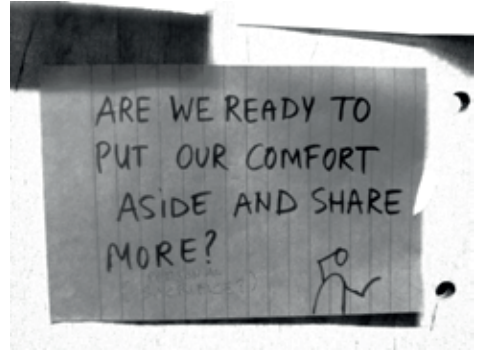 ARE WE READY TO
PUT OUR COMFORT
ASIDE AND SHARE
MORE?